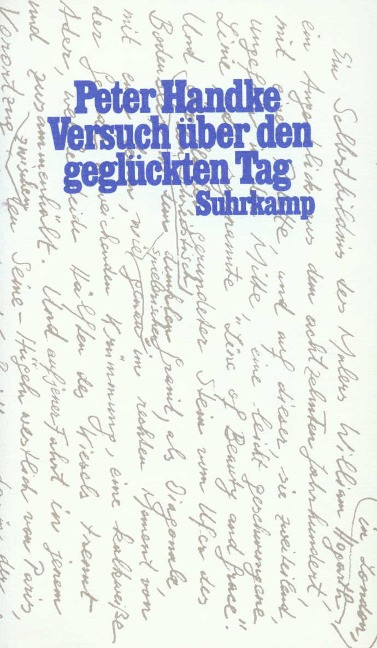 Peter Handke
Versuch über den
geglückten Tag
Suhrkamp
Ein Selbstbildnis des Malers William Hogarth, in London,
ein Augenblick aus dem achtzehnten Jahrhundert,
mit Palette, und auf dieser, sie zweiteilend,
ungefähr Mitte, eine leicht geschwungene
Linie, sogenannte "Line of Beauty and Grace".
Und gerundeter Stein vom Ufer des
dunklen Granit, als Diagonale,
mit im rechten Moment von
der abweichenden Krümmung, eine kalkweiße
Ader, beide Hälften des Kiesels trennt
und zusammenhält. Und auf jener Fahrt in jenem
Vorortzug zwischen den Seine-Hügeln westlich von Paris,